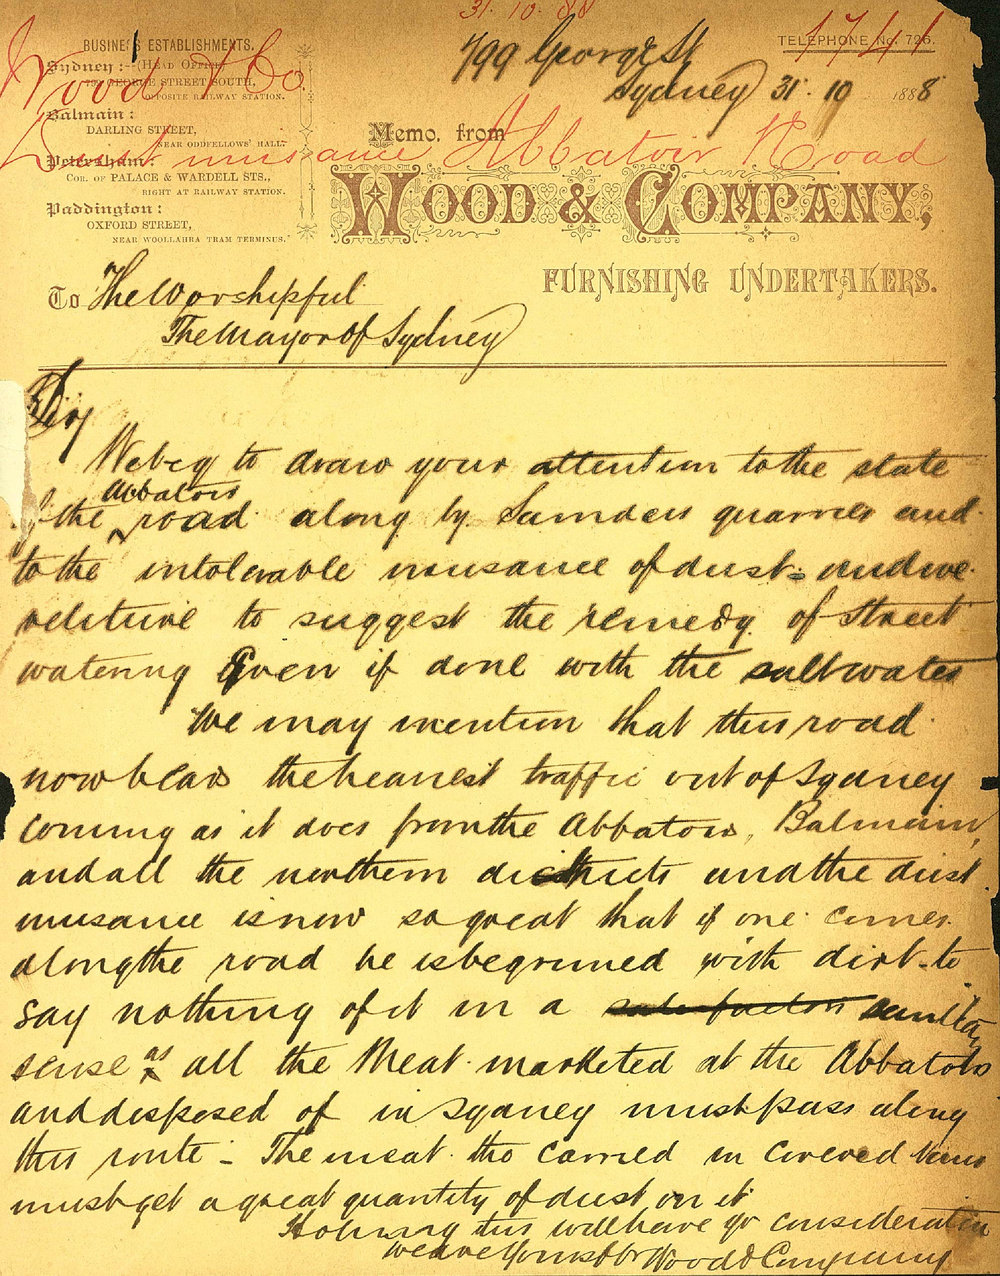 31. 10. 88
1741
Wood & Co.
Dust nuisance Abbatoir Road
BUSINESS ESTABLISHMENTS.
Sydney :- (HEAD OFFICE)
799 GEORGE STREET SOUTH,
OPPOSITE RAILWAY STATION.
Balmain :
DARLING STREET,
NEAR ODDFELLOWS' HALL.
Petersham:
COR. OF PALACE & WARDELL STS.,
RIGHT AT RAILWAY STATION.
Paddington :
OXFORD STREET,
NEAR WOOLLAHRA TRAM TERMINUS.
TELEPHONE No. 726.
799 George St
Sydney 31. 10 1888
Memo. from
WOOD & COMPANY,
FURNISHING UNDERTAKERS.
To The Worshipful
The Mayor of Sydney
Sir
We beg to draw your attention to the state
of the Abbatoir road along by Saunders quarries and
to the intolerable nuisance of dust - and we
venture to suggest the remedy of street
watering Even if done with the salt water
We may mention that this road
now bears the heaviest traffic out of Sydney
coming as it does from the Abbatoirs, Balmain,
and all the northern districts and the dust
nuisance is now so great that if one comes
along the road he is begrimed with dirt - to
say nothing of it in a sanitary
sense as all the Meat marketed at the Abbatoirs
and disposed of in Sydney must pass along
this route - The meat tho carried in covered Vans
must get a great quantity of dust on it
Hoping this will have yr consideration
we are Yours Wood & Company